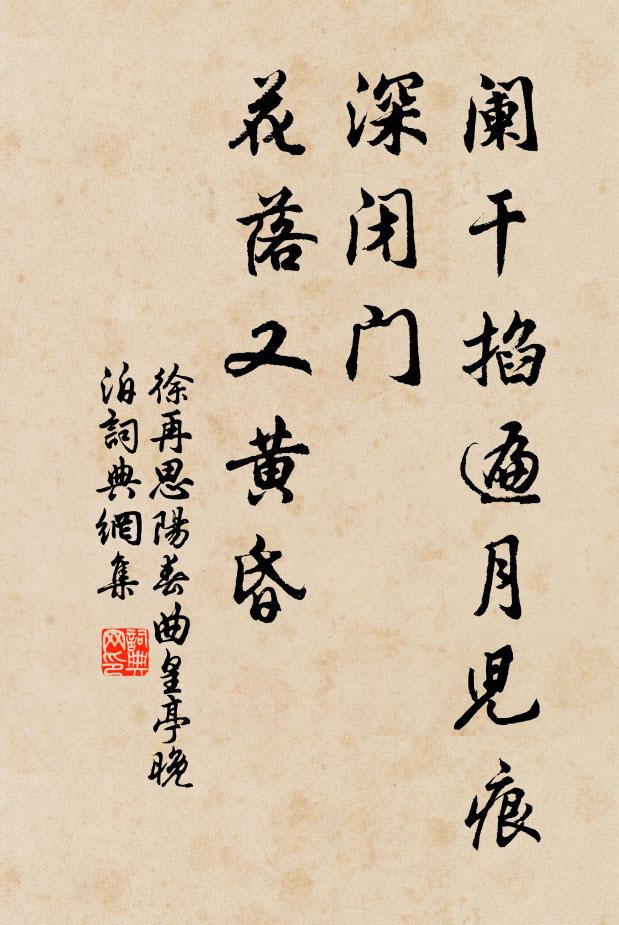 阑干掐遍月兒痕
深闭门
花落又黄昏
徐再思陽春曲皇亭晚
泊詞典網集
詞典网印